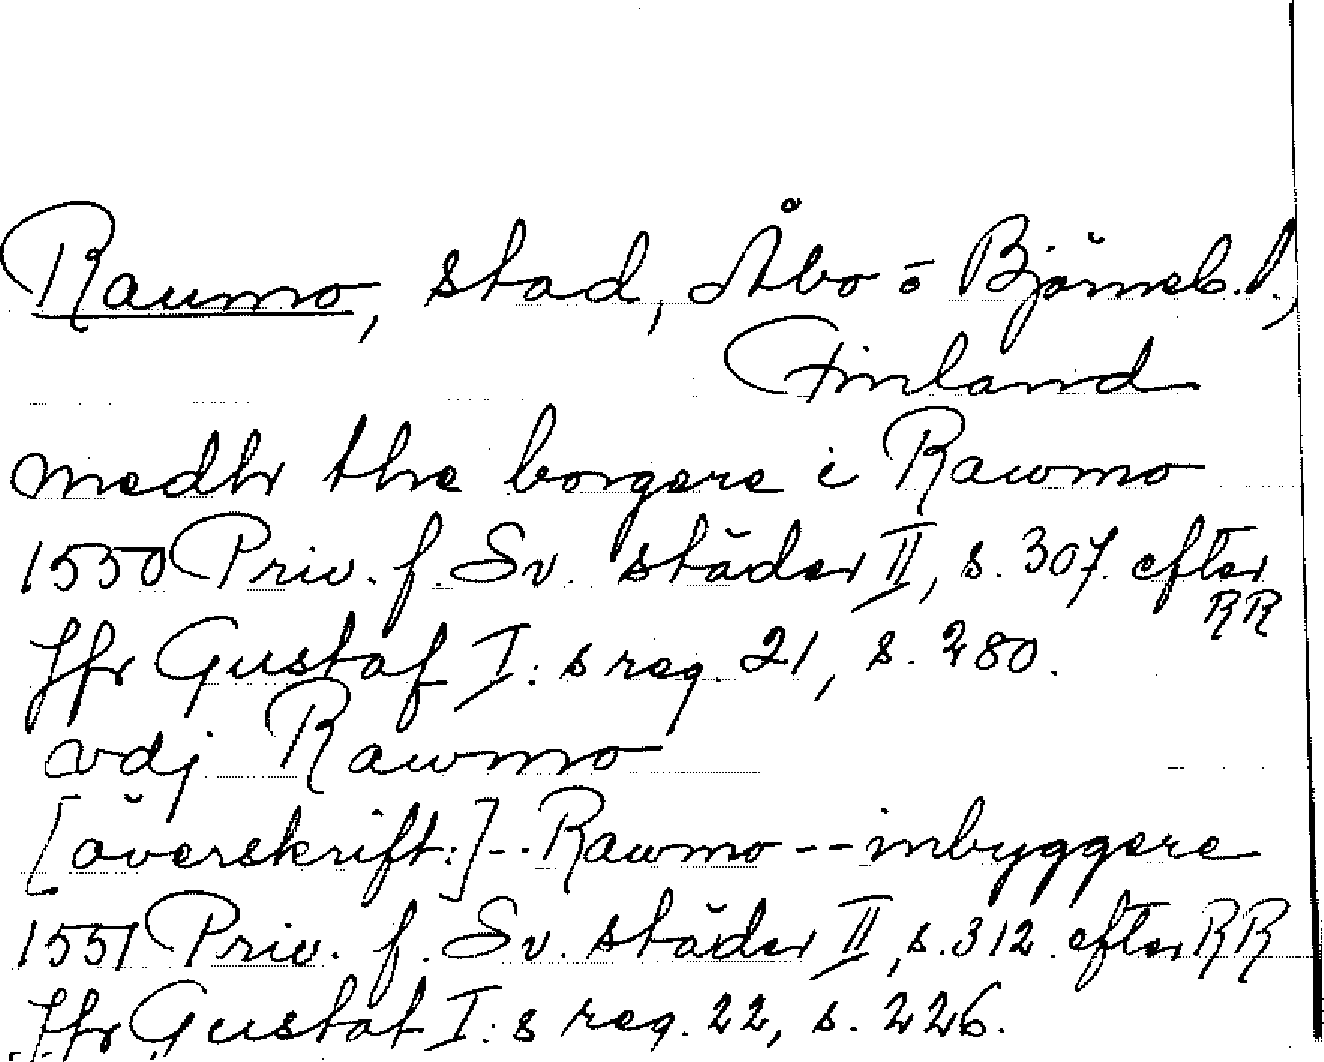 Raumo, stad, Åbo o Björneb. l.,
Finland
medhr the borgere i Rawmo
1550 Priv. f. Sv. städer II, s. 307. efter
RR
Jfr Gustaf I:s reg. 21, s. 280.
vdj Rawmo
[överskrift:]-- Rawmo -- inbyggere
1551 Priv. f. Sv. städer II, s. 312. efter RR
Jfr Gustaf I:s reg. 22, s. 226.